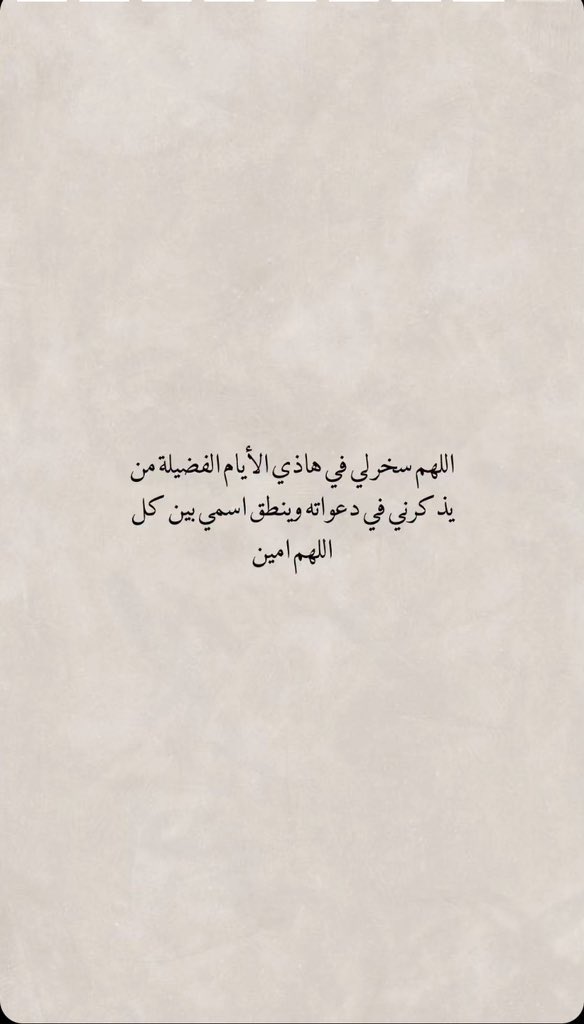 اللهم سخرلي في هاذي الأيام الفضيلة من
يذكرني في دعواته وينطق اسمي بين كل
اللهم امين